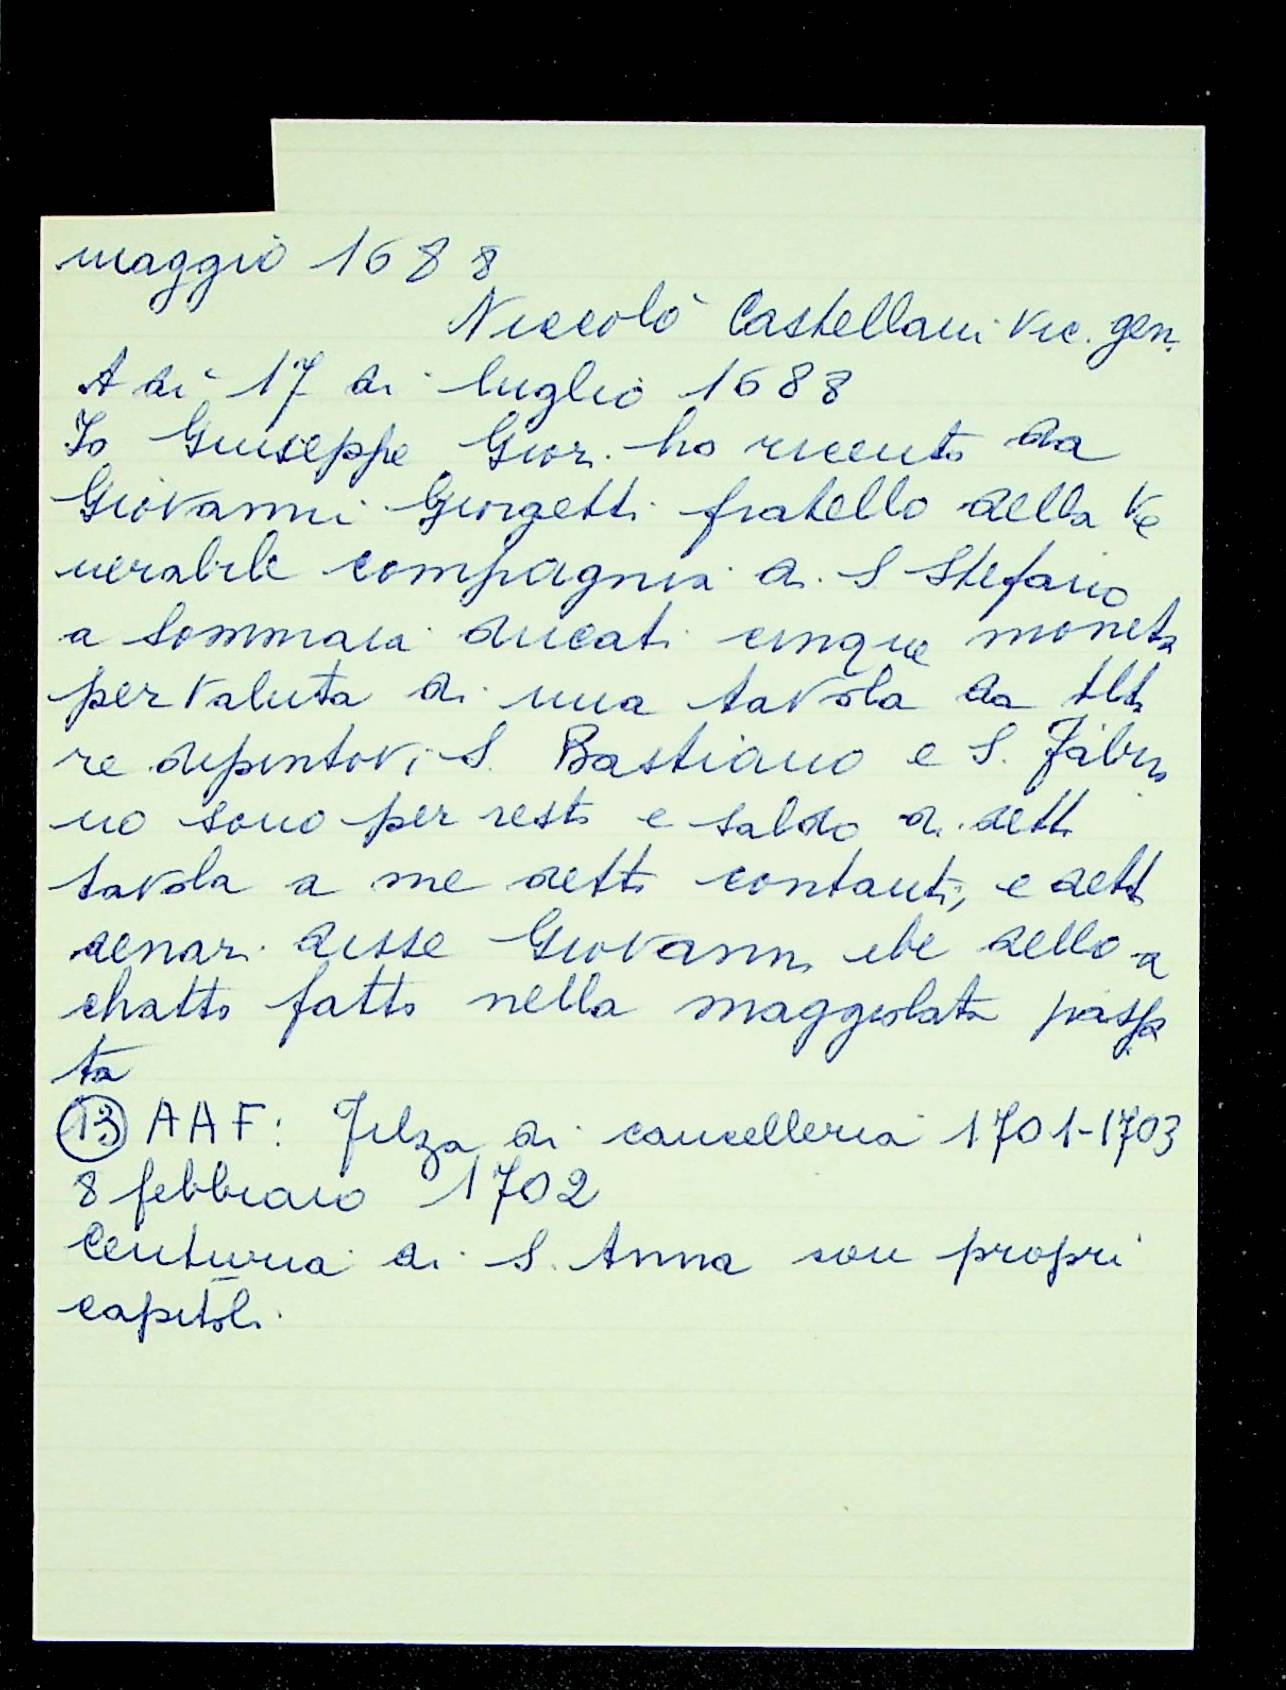 maggio 1688
Niccolò Castellani Vic. gen.
A dì 17 di luglio 1688
Io Giuseppe Gior. ho riceuto da
Giovanni Giorgetti fratello della Ve
nerabile compagnia di S Stefano
a Sommaia ducati cinque moneta
per valuta di una tavola da
re dipintovi S. Bastiano e S. Fabia
no sono per resto e saldo di detta
tavola a me detto contanti, e detti
denari disse Giovanni ebe dello a
chatto fatto nella maggiolata passa
ta
13 AAF: Filza di cancelleria 1701-1703
8 febbraio 1702
Centuria di S. Anna con propri
capitoli.